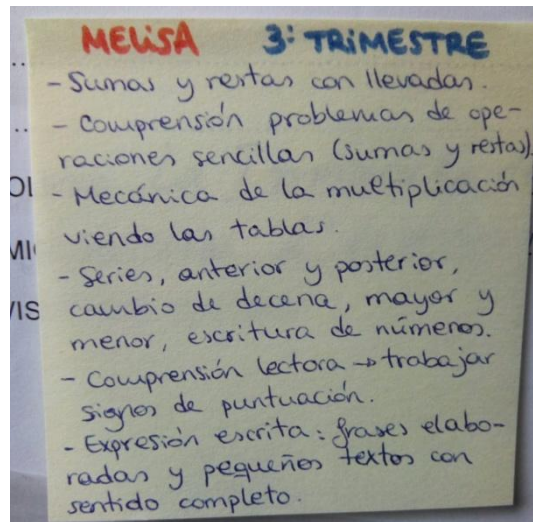 MELISA 3: TRIMESTRE
- Sumas y restas con llevadas.
- Comprensión problemas de ope-
raciones sencillas (sumas y restas).
- Mecánica de la multiplicación
viendo las tablas.
- Series, anterior y posterior,
cambio de decena, mayor y
menor, escritura de números.
- Comprensión lectora → trabajar
signos de puntuación.
- Expresión escrita: frases elabo-
radas y pequeños textos con
sentido completo.